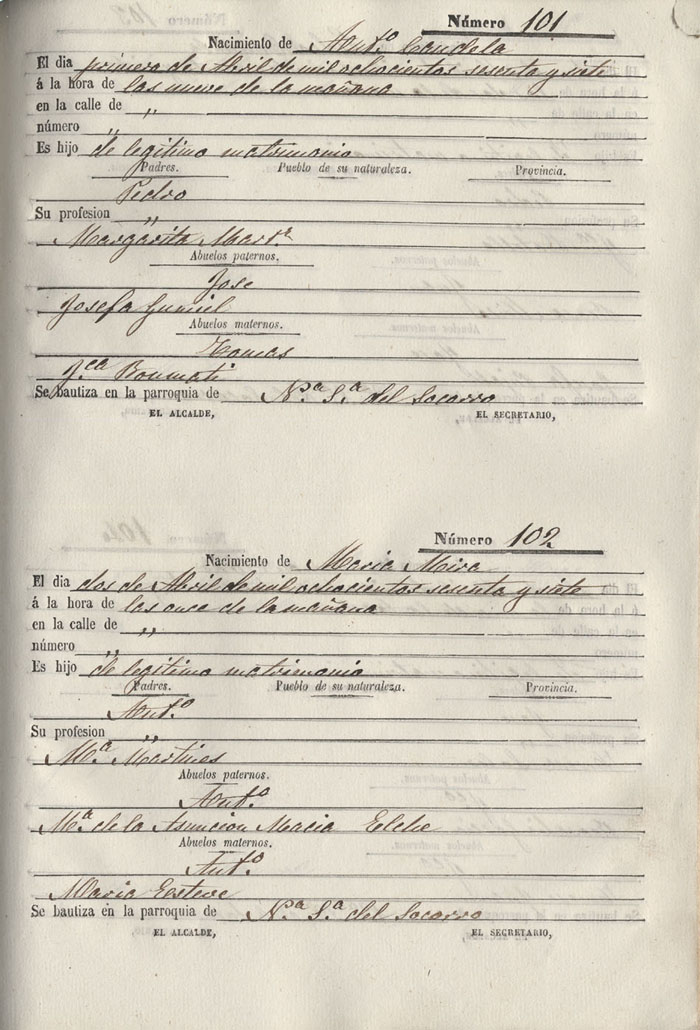 Número 101
Nacimiento de Ant.º Candela
El dia primero de Abril de mil ochocientos sesenta y siete
á la hora de las nueve de la mañana
en la calle de "
número "
Es hijo de legitimo matrimonio
Padres. Pueblo de su naturaleza. Provincia.
Pedro
Su profesion "
Margarita Mart.z
Abuelos paternos.
Jose
Josefa Gumiel
Abuelos maternos.
Tomas
F.ca Boumati
Se bautiza en la parroquia de N.ª S.ª del Socorro
EL ALCALDE, EL SECRETARIO,
Número 102
Nacimiento de Maria Mira
El dia dos de Abril de mil ochocientos sesenta y siete
á la hora de las once de la mañana
en la calle de "
número "
Es hijo de legitimo matrimonio
Padres. Pueblo de su naturaleza. Provincia.
Ant.º
Su profesion "
M.ª Martines
Abuelos paternos.
Ant.º
M.ª de la Asuncion Macia Elche
Abuelos maternos.
Ant.º
Maria Esteve
Se bautiza en la parroquia de N.ª S.ª del Socorro
EL ALCALDE, EL SECRETARIO,